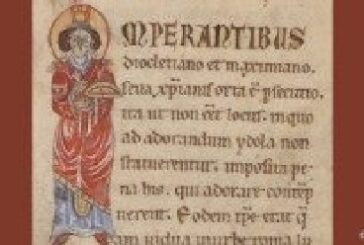 MPERANTIBUS
diocletiano et maximiano.
seua xp̄ianis orta ē p̄secutio.
ita ut non eēt locus. in quo
ad adorandum ydola non
statuerentur. imposita pe
na his. qui adorare contēp
nerent. Eodem tp̄e erat q̄
dam uidua in urbe roma lu